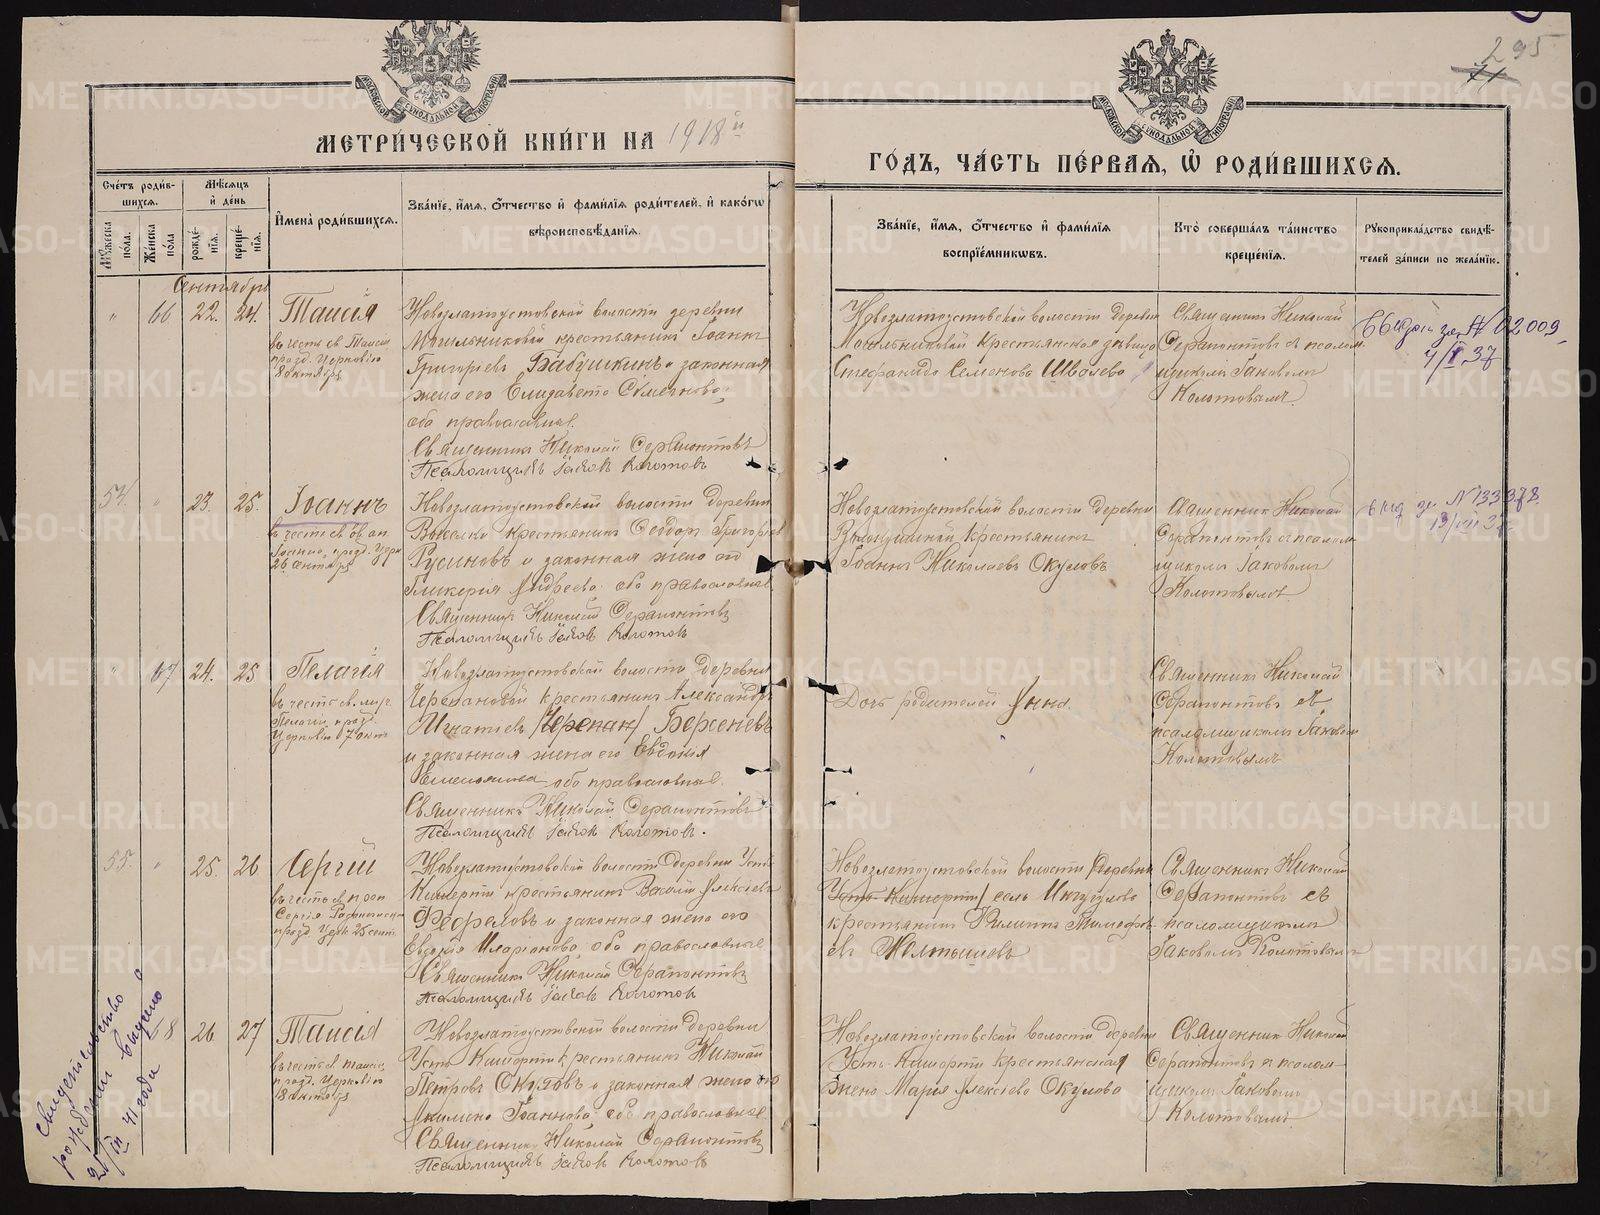 295
МЕТРИЧЕСКОЙ КНИГИ НА 1918й
ГОДЪ, ЧАСТЬ ПЕРВАЯ, Ѡ РОДИВШИХСЯ.
Счетъ родившихся.
Мужеска пола.
Женска пола
Мѣсяцъ и день
рождѣнія.
крещенія.
Имена родившихся.
Званіе, имя, отчество и фамилія родителей, и какогѡ
вѣроисповѣданія.
Званіе, имя, отчество и фамилія
воспріемникѡвъ.
Кто совершалъ таинство
крещенія.
Рукоприкладство свидѣ-
телей записи по желанію.
Сентябрь
" 66 22. 24. Таисія
въ честь св. Таисіи
празд. Церковію
8 октябрь
Новозлатоустовской волости деревни
Могильниковой крестьянинъ Іоаннъ
Григорьевъ Бабушкинъ и законная
жена его Елизавета Семенова,
оба православные.
Священникъ Николай Серапонтовъ
Псаломщикъ Іаковъ Колотовъ
Новозлатоустовской волости деревни
Могильниковой крестьянская дѣвица
Стефанида Семенова Швалева
Священникъ Николай
Серапонтовъ и псалом-
щикомъ Іаковомъ
Колотовымъ.
02009
4/I 37
54. " 23. 25. Іоаннъ
въ честь св. ап.
Іоанна, празд. Церк.
26 сентября
Новозлатоустовской волости деревни
крестьянинъ Феодоръ Григорьев
Русиновъ и законная жена его
Гликерія Андреева, оба православные
Священникъ Николай Серапонтовъ
Псаломщикъ Іаковъ Колотовъ
Новозлатоустовской волости деревни
крестьянинъ
Іоаннъ Николаевъ Окуловъ
Священникъ Николай
Серапонтовъ и псалом-
щикомъ Іаковомъ
Колотовымъ
N 133378
13/VII 37
" 67 24. 25 Пелагія
въ честь св. муч.
Пелагіи, празд.
Церковію 7 окт.
Новозлатоустовской волости деревни
Черепановой крестьянинъ Александръ
Игнатіевъ /Черепан/ Берсеневъ
и законная жена его Евдокія
Емельянова, оба православные.
Священникъ Николай Серапонтовъ
Псаломщикъ Іаковъ Колотовъ.
Дочь родителей Анна.
Священникъ Николай
Серапонтовъ съ
псаломщикомъ Іаковом
Колотовымъ
55. " 25. 26 Сергій
въ честь св. преп.
Сергія Радонежска
празд. Церк. 25 сент.
Новозлатоустовской волости деревни Усть
Кишерти крестьянинъ Василій Алексѣевъ
Ѳеофиловъ и законная жена его
Евдокія Иларіонова, оба православные
Священникъ Николай Серапонтовъ
Псаломщикъ Іаковъ Колотовъ
Новозлатоустовской волости /деревни
Усть-Кишерти/ села
крестьянинъ Филиппъ Тимофѣ-
евъ Желтышевъ
Священникъ Николай
Серапонтовъ съ
псаломщикомъ
Іаковомъ Колотовымъ
68 26 27 Таисія
въ честь св. Таисіи
празд. Церковію
8 октябрь
Новозлатоустовской волости деревни
Усть Кишерти крестьянинъ Николай
Петровъ Окуловъ и законная жена его
Акилина Іоаннова, оба православные
Священникъ Николай Серапонтовъ
Псаломщикъ Іаковъ Колотовъ
Новозлатоустовской волости деревни
Усть-Кишерти крестьянская
жена Марія Алексѣева Окулова
Священникъ Николай
Серапонтовъ и псалом-
щикомъ Іаковомъ
Колотовымъ.
Свидетельство
о рождении выдано
2/III 41 года
METRIKI.GASO-URAL.RU